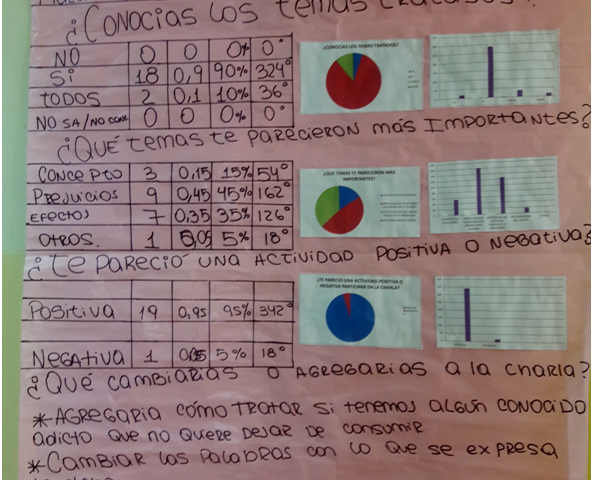 ¿CONOCIAS LOS temas tratados?
NO 0 0 0% 0°
Si 18 0,9 90% 324°
tODOS 2 0,1 10% 36°
NO SA/NO CON 0 0 0% 0°
¿CONOCIAS LOS TEMAS TRATADAS?
¿QUÉ temas te PARECIERON más IMPORtANtes?
CONCEPtO 3 0,15 15% 54°
PREJUICIOS 9 0,45 45% 162°
EFECtOS 7 0,35 35% 126°
OtROS. 1 0,05 5% 18°
¿QUE TEMAS TE PARECIERON MAS
IMPORTANTES?
¿te PARECIÓ UNA ACTIVIDAD POSITIVA O NEGATIVA?
POSITIVA 19 0,95 95% 342°
NEGAtiva 1 0,05 5% 18°
¿TE PARECIO UNA ACTIVIDAD POSITIVA O
NEGATIVA PARTICIPAR EN LA CHARLA?
¿QUÉ CAMBIARIAS O AGREGARIAS a la CHARLA?
*AGREGARIA CÓMO TRATAR SI tenemos ALGUN CONOCIDO
adicto QUE NO QUERE DEJAR DE CONSUMIR
*CAMBIAR LOS PALABRAS CON LO QUE SE EXPRESA